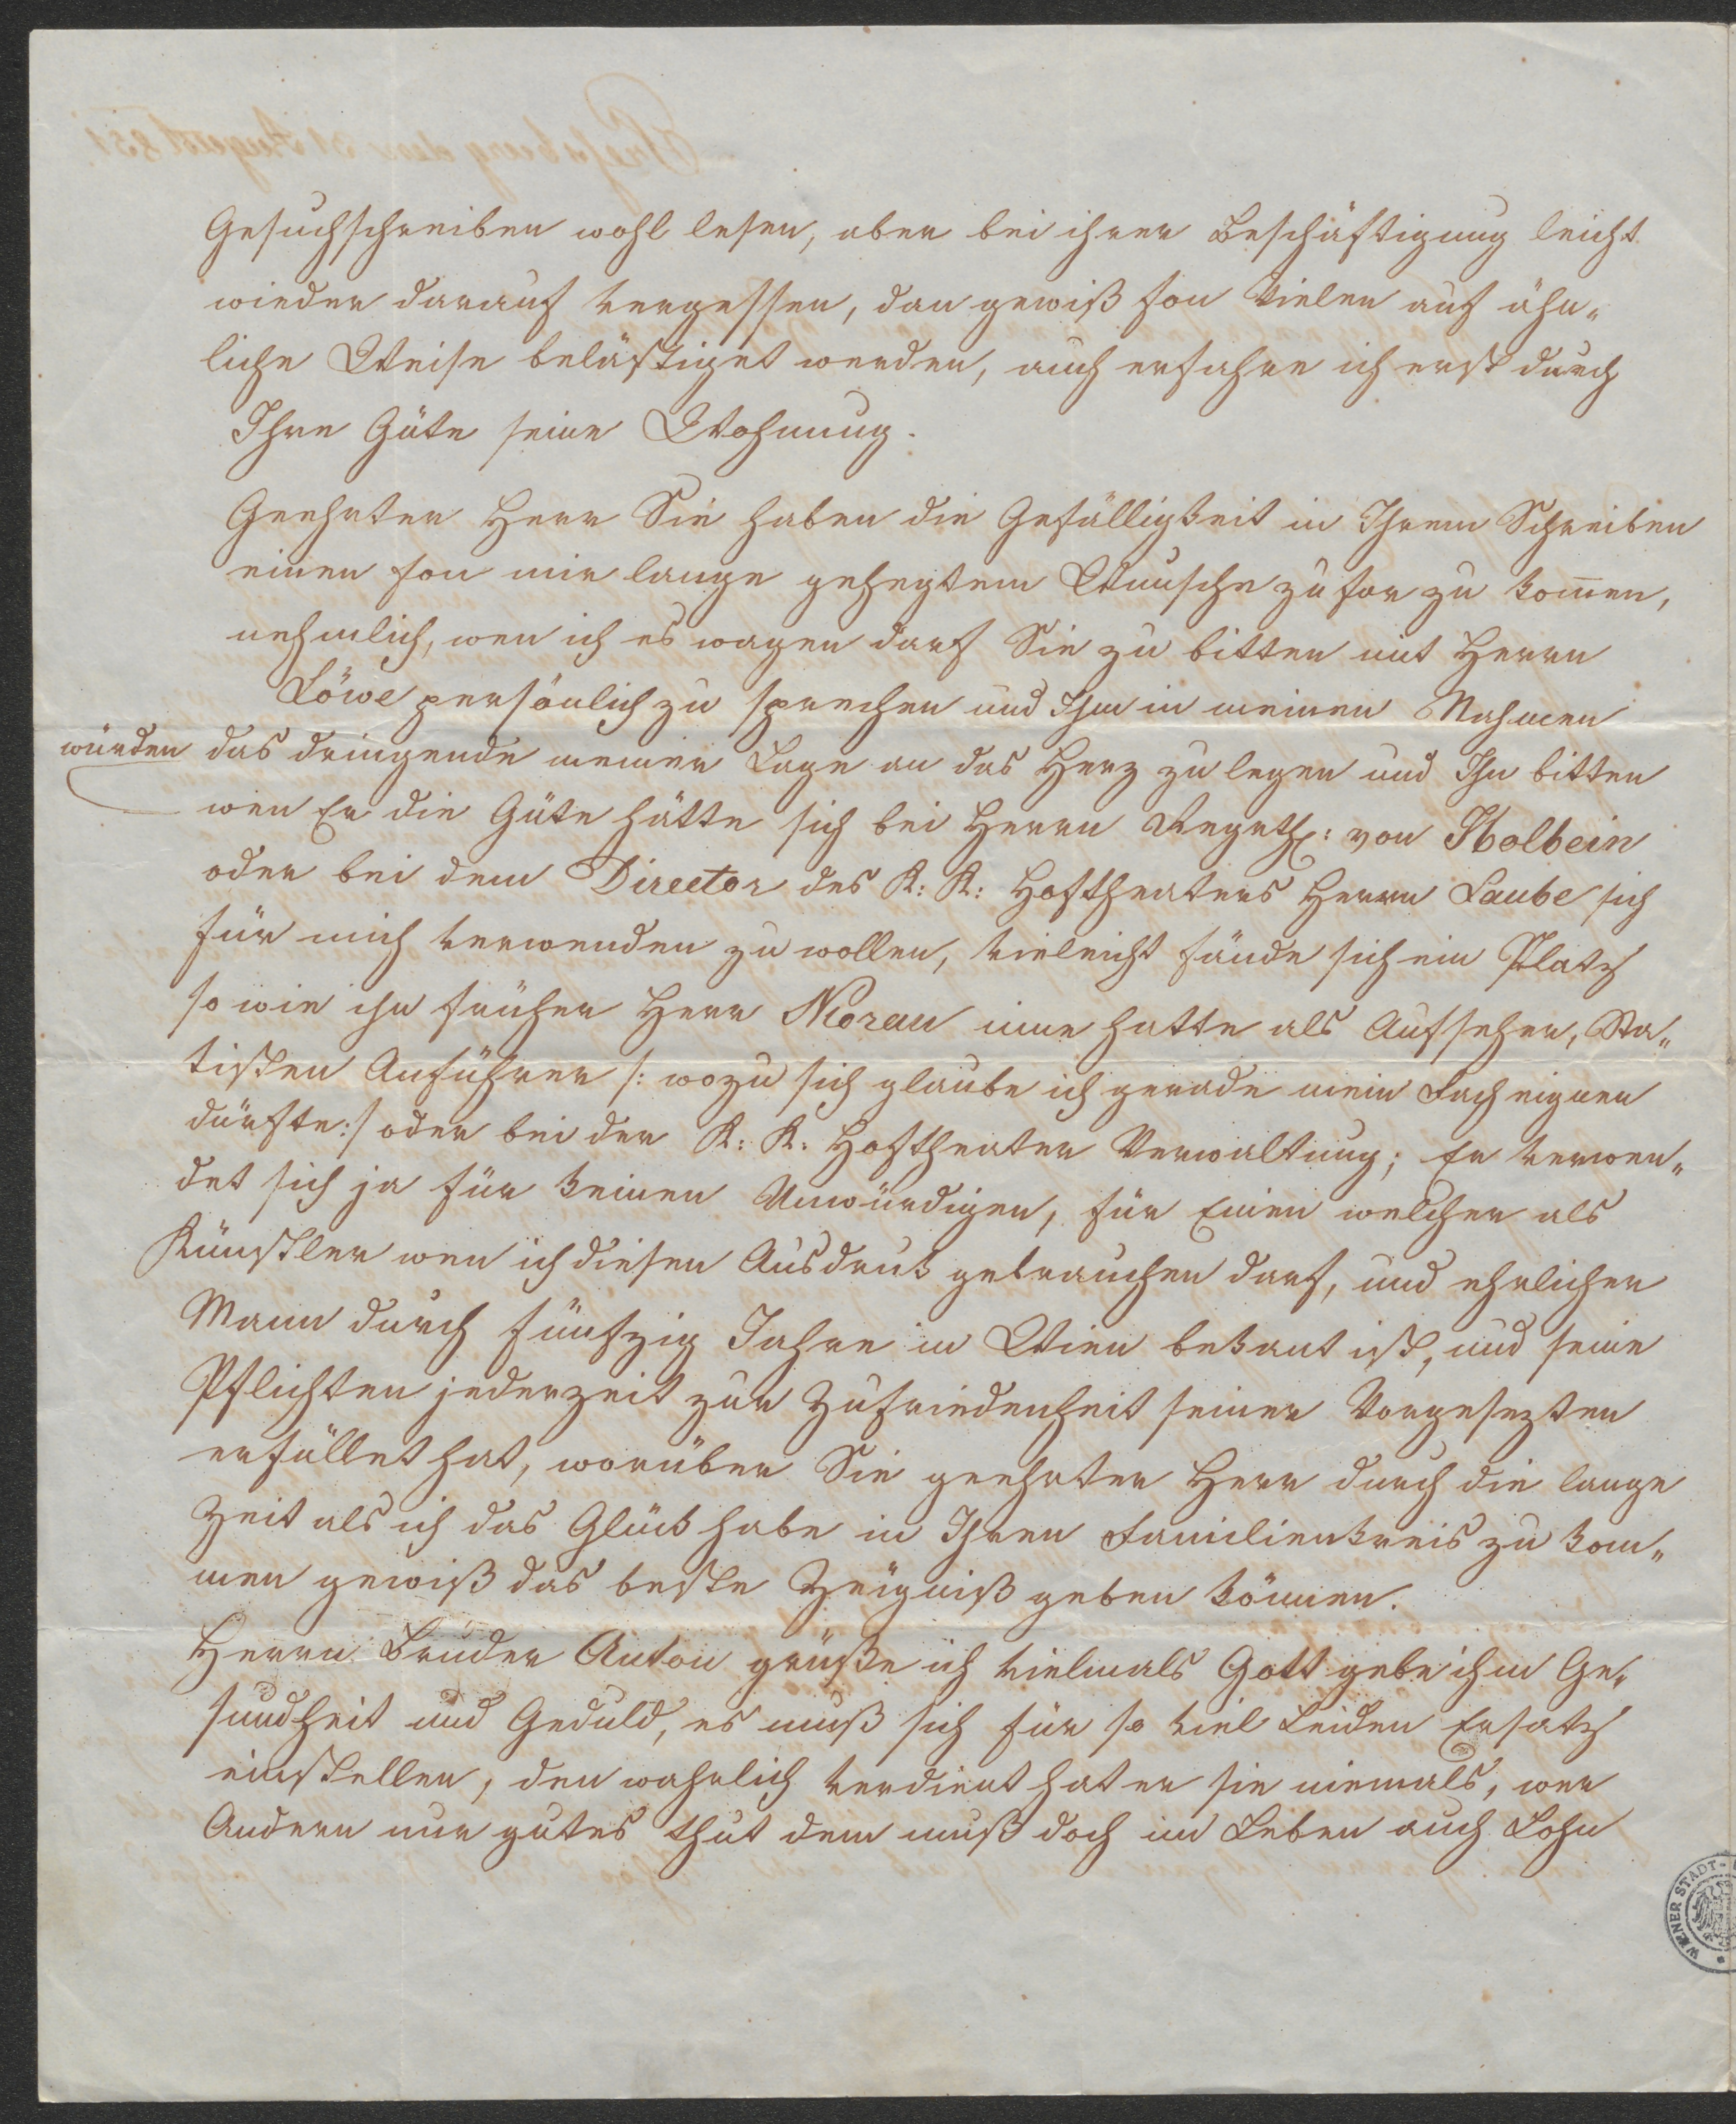 Gesuchschreiben wohl lesen, aber bei ihrer Beschäftigung leicht
wieder darauf vergessen, dan gewiß son Vielen auf ähn„
liche Weise belästiget werden, auch erfahre ich erst durch
Ihre Güte seine Wohnung.
Geehrter Herr Sie haben die Gefälligkeit in Ihrem Schreiben
einen fon mir lange gehegtem Wunsche zu for zu kom̄en,
nehmlich, wen ich es wagen darf Sie zu bitten mit Herrn
Löwe persönlich zu sprechen und Ihm in meinen Nahmen
würden das dringende meiner Lage an das Herz zu legen und Ihn bitten
wen Er die Güte hätte sich bei Herrn Regrth: von Holbein
oder bei dem Director des K: K: Hoftheaters Herrn Laube sich
für mich verwenden zu wollen, vieleicht fände sich ein Platz
so wie ihn früher Herr Moreau inne hatte als Aufseher, Sta„
tisten Anführer /: wozu sich glaube ich gerade mein Fach eignen
dürfte:/ oder bei der K: K: Hoftheater Verwaltung; Er verwen„
det sich ja für keinen Unwürdigen, für Einen welcher als
Künstler wen ich diesen Ausdruk gebrauchen darf, und ehrlicher
Mann durch fünfzig Jahre in Wien bekant ist, und seine
Pflichten jederzeit zur Zufriedenheit seiner Vorgesezten
erfüllet hat, worüber Sie geehrter Herr durch die lange
Zeit als ich das Glük habe in Ihren Familienkreis zu kom„
men gewiß das beste Zeügniß geben können.
Herrn Bruder Anton grüße ich vielmals Gott gebe ihm Ge„
sundheit und Geduld, es muß sich für so viel Leiden Ersatz
einstellen, den wahrlich verdient hat er sie niemals, wer
Andern nur gutes thut dem muß doch im Leben auch Lohn
WIENER STADT-